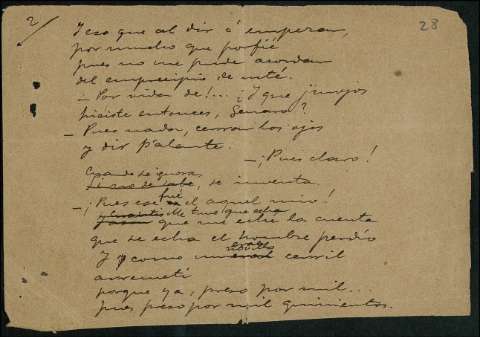 2/
28
Y eso que al dir á empezar,
por mucho que porfié
pues no me pude acordar
del emprecipio de usté.
— Por vida de!... ¿Y qué
hiciste entonces, Genaro?
— Pues nada, cerrar los ojos
y dir p'alante.
— ¡Pues claro!
Cuando se ignora
, se inventa.
— ¡Pues ese fué el aquel mío!
que me eché la cuenta
que se echa el hombre perdío
Y como un cerril
arremetí
porque ya, preso por mil...
pues preso por mil quinientos.